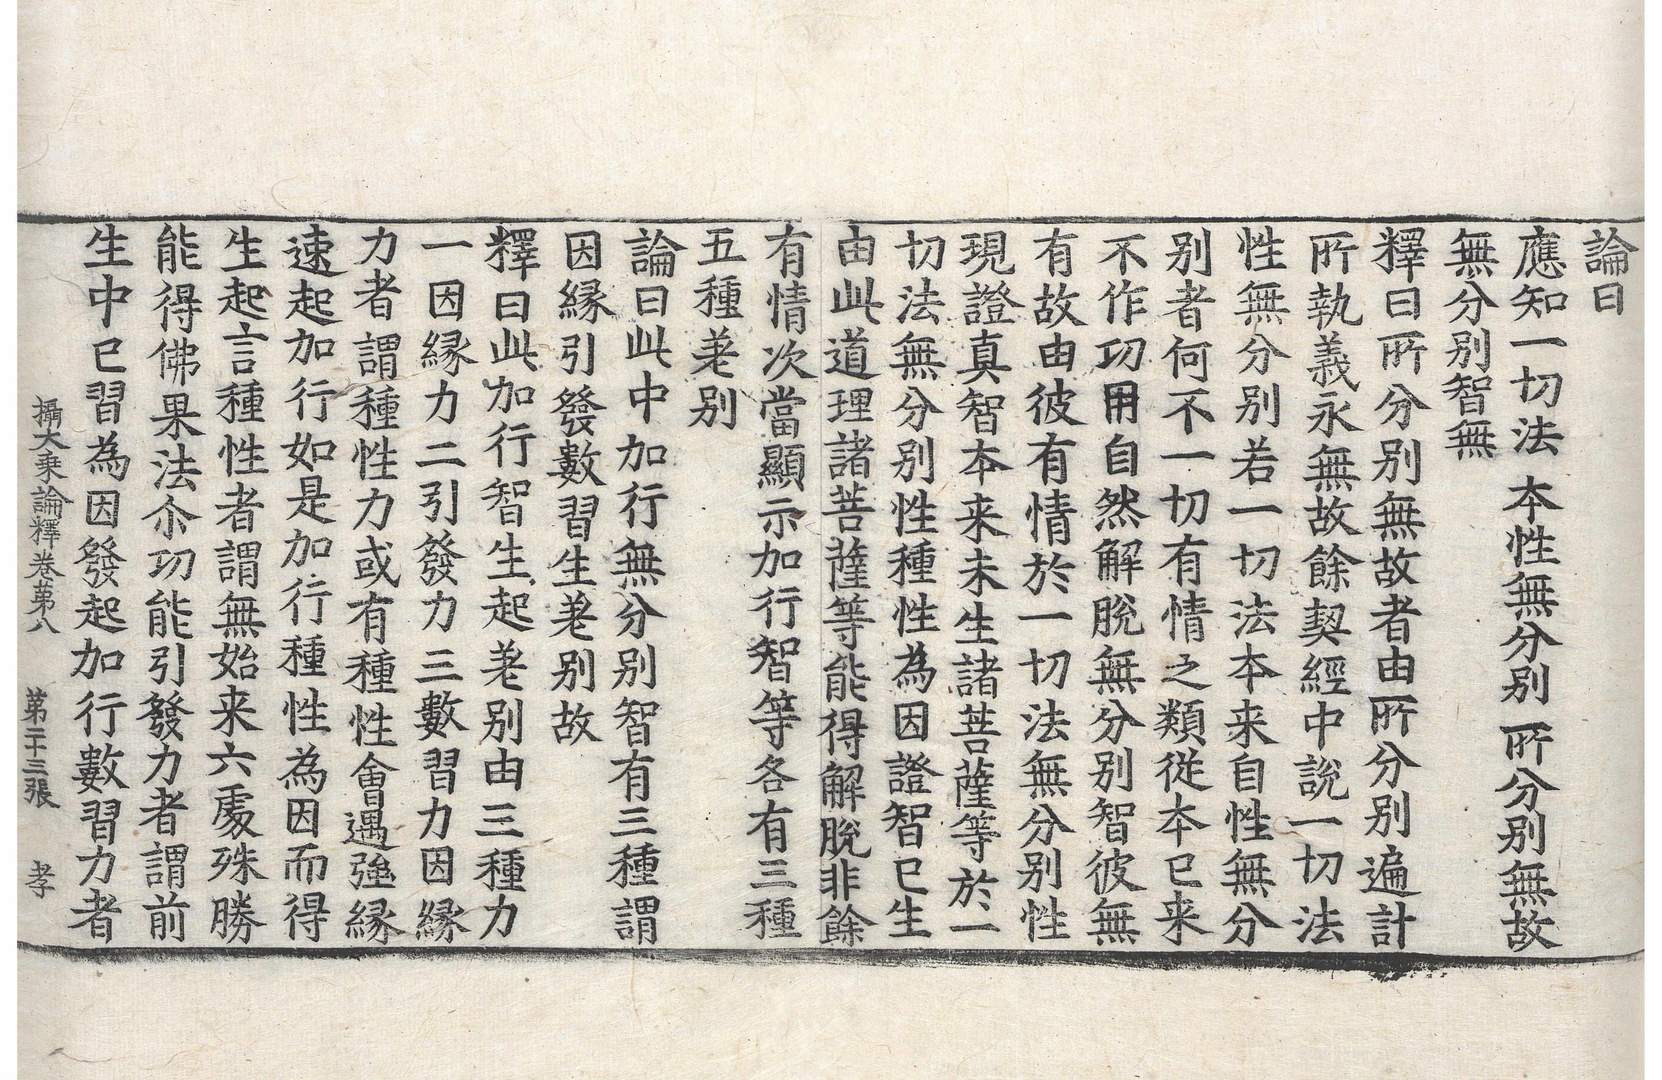 論曰
應知一切法 本性無分別 所分別無故
無分別智無
釋曰所分別無故者由所分別遍計
所執義永無故餘契經中說一切法
性無分別若一切法本来自性無分
別者何不一切有情之類從本已来
不作功用自然解脫無分別智彼無
有故由彼有情於一切法無分別性
現證真智本来未生諸菩薩等於一
切法無分別性種性為因證智已生
由此道理諸菩薩等能得解脫非餘
有情次當顯示加行智等各有三種
五種差別
論曰此中加行無分別智有三種謂
因縁引發數習生差別故
釋曰此加行智生起差別由三種力
一因縁力二引發力三數習力因縁
力者謂種性力或有種性會遇強縁
速起加行如是加行種性為因而得
生起言種性者謂無始来六處殊勝
能得佛果法尒功能引發力者謂前
生中已習為因發起加行數習力者
攝大乗論釋卷第八 第二十三張 孝